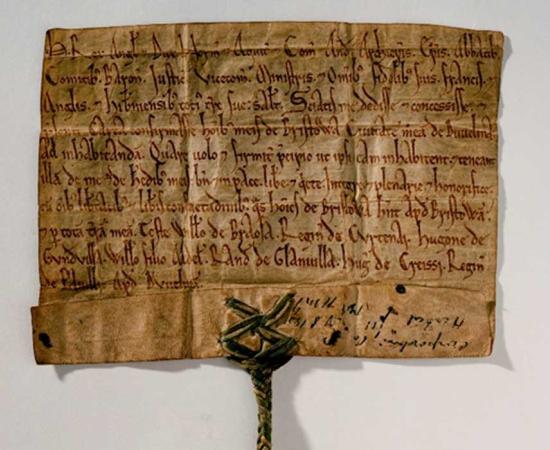 H. Rex Angl'. Dux Norm'. ⁊ Aquit'. ⁊ Com' And'. Archiepis. Epis. Abbatib'.
Comitib'. Baron'. Justic'. Vicecom'. Ministris. ⁊ Omib' fidelib' suis. Francis. ⁊
Anglis. ⁊ Hib'niensib' toti' t're sue: salt'. Sciatis me dedisse ⁊ concessisse. ⁊
p'senti Carta confirmasse ho'ib' meis de Bristowa. Ciuitate' mea' de Duuelina.
ad inhabitanda'. Quare uolo ⁊ firmit' p'cipio ut ipsi eam inhabitent. ⁊ teneant
illa' de me ⁊ de h'edib' meis. bn' ⁊ in pace. lib'e. ⁊ q'ete. Integre. ⁊ plenarie. ⁊ honorifice.
cu' o'ib' lib'tatib'. ⁊ lib'is consuetudinib'. q's ho'ies de Bristowa h'nt ap'd Bristowa'.
⁊ p' tota' t'ra' mea'. Teste Will'o de Braosa. Regin' de Curtenai. Hugone de
Gundvilla. Will'o filio Aldel'. Rand' de Glanuilla. Hug' de Creissi. Regin'
de Pauilli. Apd' Duuelina'.